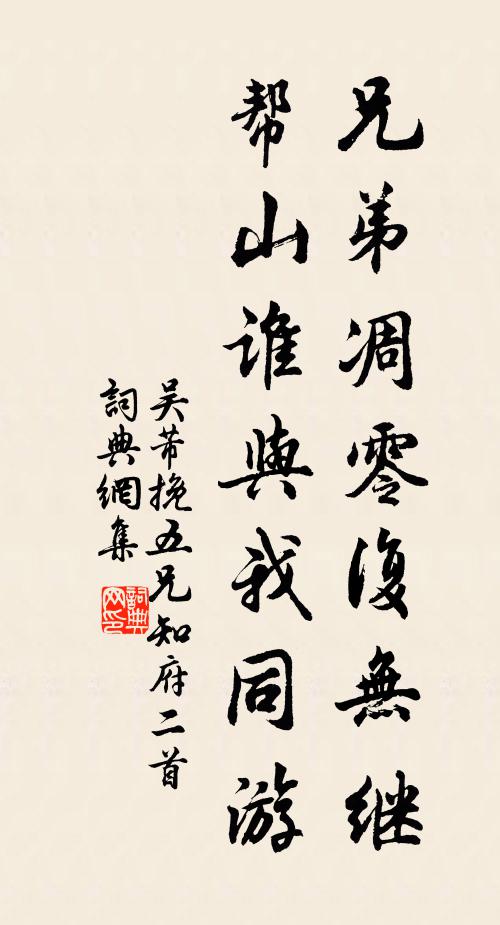 兄弟凋零復無継
帮山谁與我同游
吴芾挽五兄知府二首
詞典網集
詞典网印